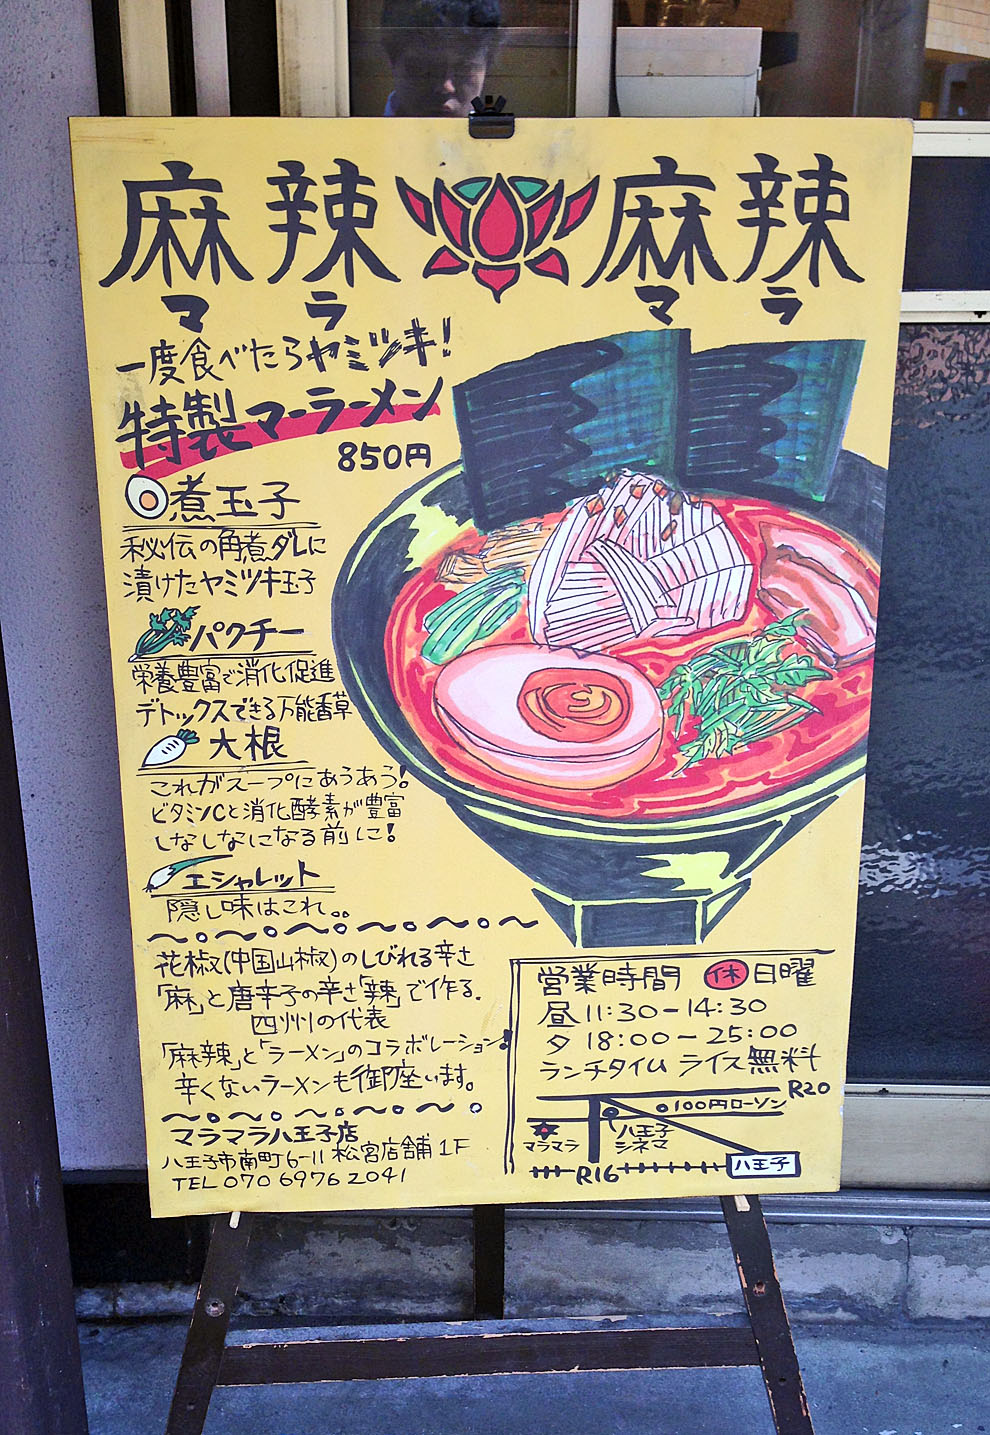 麻辣 麻辣
マ ラ マ ラ
一度食べたらヤミツキ!
特製マーラーメン
850円
煮玉子
秘伝の角煮ダレに
漬けたヤミツキ玉子
パクチー
栄養豊富で消化促進
デトックスできる万能香草
大根
これがスープにあうあう!
ビタミンCと消化酵素が豊富
しなしなになる前に!
エシャレット
隠し味はこれ。。
花椒(中国山椒)のしびれる辛さ
「麻」と唐辛子の辛さ「辣」で作る.
四川の代表
「麻辣」と「ラーメン」のコラボレーション!
辛くないラーメンも御座います。
マラマラ八王子店
八王子市南町6-11 松宮店舗 1F
TEL 070 6976 2041
営業時間 休 日曜
昼 11:30-14:30
夕 18:00~25:00
ランチタイム ライス無料
R20
100円ローソン
マラマラ
八王子
シネマ
八王子
R16